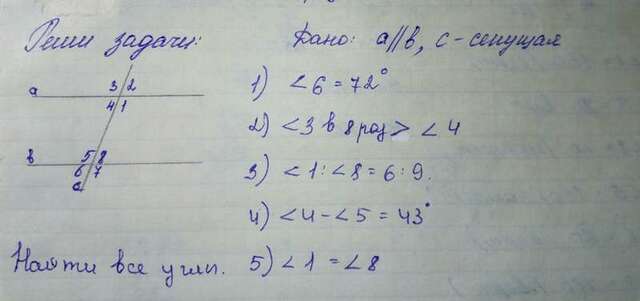 Реши задачи:
Дано: a//b, c-секущая
a 3 2
4 1
b 5 8
6 7
c
1) <6=72°
2) <3 в 8 раз > <4
3) <1:<8=6:9.
4) <4-<5=43°
Найти все углы.
5) <1=<8